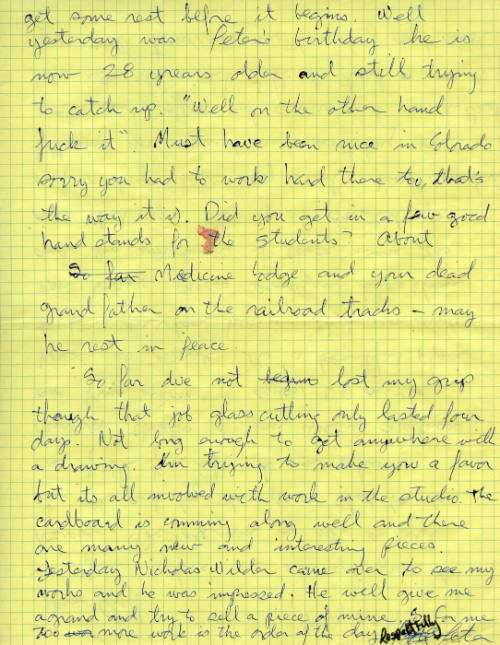 get some rest before it begins. Well
yesterday was Peter's birthday he is
now 28 years older and still trying
to catch up. "Well on the other hand
fuck it". Must have been nice in Colorado
sorry you had to work hard there too, that's
the way it is. Did you get in a few good
hand stands for the students? About
So far Medicine Lodge and your dead
grand father on the railroad tracks – may
he rest in peace.
So far ive not begun lost my grip
though that job glass cutting only lasted four
days. Not long enough to get anywhere with
a drawing. Im trying to make you a favor
but its all involved with work in the studio. The
cardboard is comming along well and there
are many new and interesting pieces.
Yesterday Nicholas Wilder came over to see my
works and he was impressed. He will give me
a grand and try to sell a piece of mine for me
too more work is the order of the day Respectfully
Peter